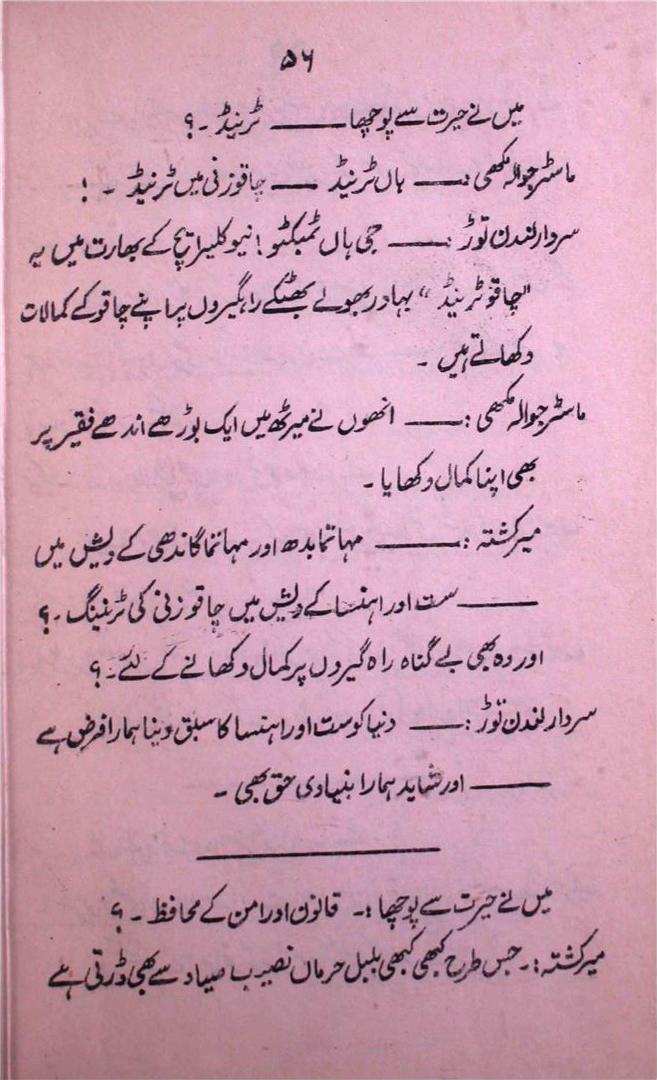 ۵۶
میں نے حیرت سے پوچھا ——— ٹرنیڈ ۔ ؟
ماسٹر جوالہ مکھی :—— ہاں ٹرنیڈ —— چاقو زنی میں ٹرنیڈ ۔ !
سردار لندن توڑ :—— جی ہاں ٹمبکٹو ! نیو کلیرایج کے بھارت میں یہ
"چاقو ٹرنیڈ" بہادر بھولے بھٹکے راہگیروں پر اپنے چاقو کے کمالات
دکھاتے ہیں ۔
ماسٹر جوالہ مکھی :—— انھوں نے میرٹھ میں ایک بوڑھے اندھے فقیر پر
بھی اپنا کمال دکھایا ۔
میر کشتہ :——— مہاتما بدھ اور مہاتما گاندھی کے دیش میں
——— ست اور اہنسا کے دیش میں چاقو زنی کی ٹریننگ ۔ ؟
اور وہ بھی بے گناہ راہ گیروں پر کمال دکھانے کے لئے ۔ ؟
سردار لندن توڑ :—— دنیا کو ست اور اہنسا کا سبق دینا ہمارا فرض ہے
——— اور شاید ہمارا بنیادی حق بھی ۔
میں نے حیرت سے پوچھا :۔ قانون اور امن کے محافظ ۔ ؟
میر کشتہ :۔ جس طرح کبھی کبھی بلبل حرماں نصیب صیاد سے بھی ڈرتی ہے